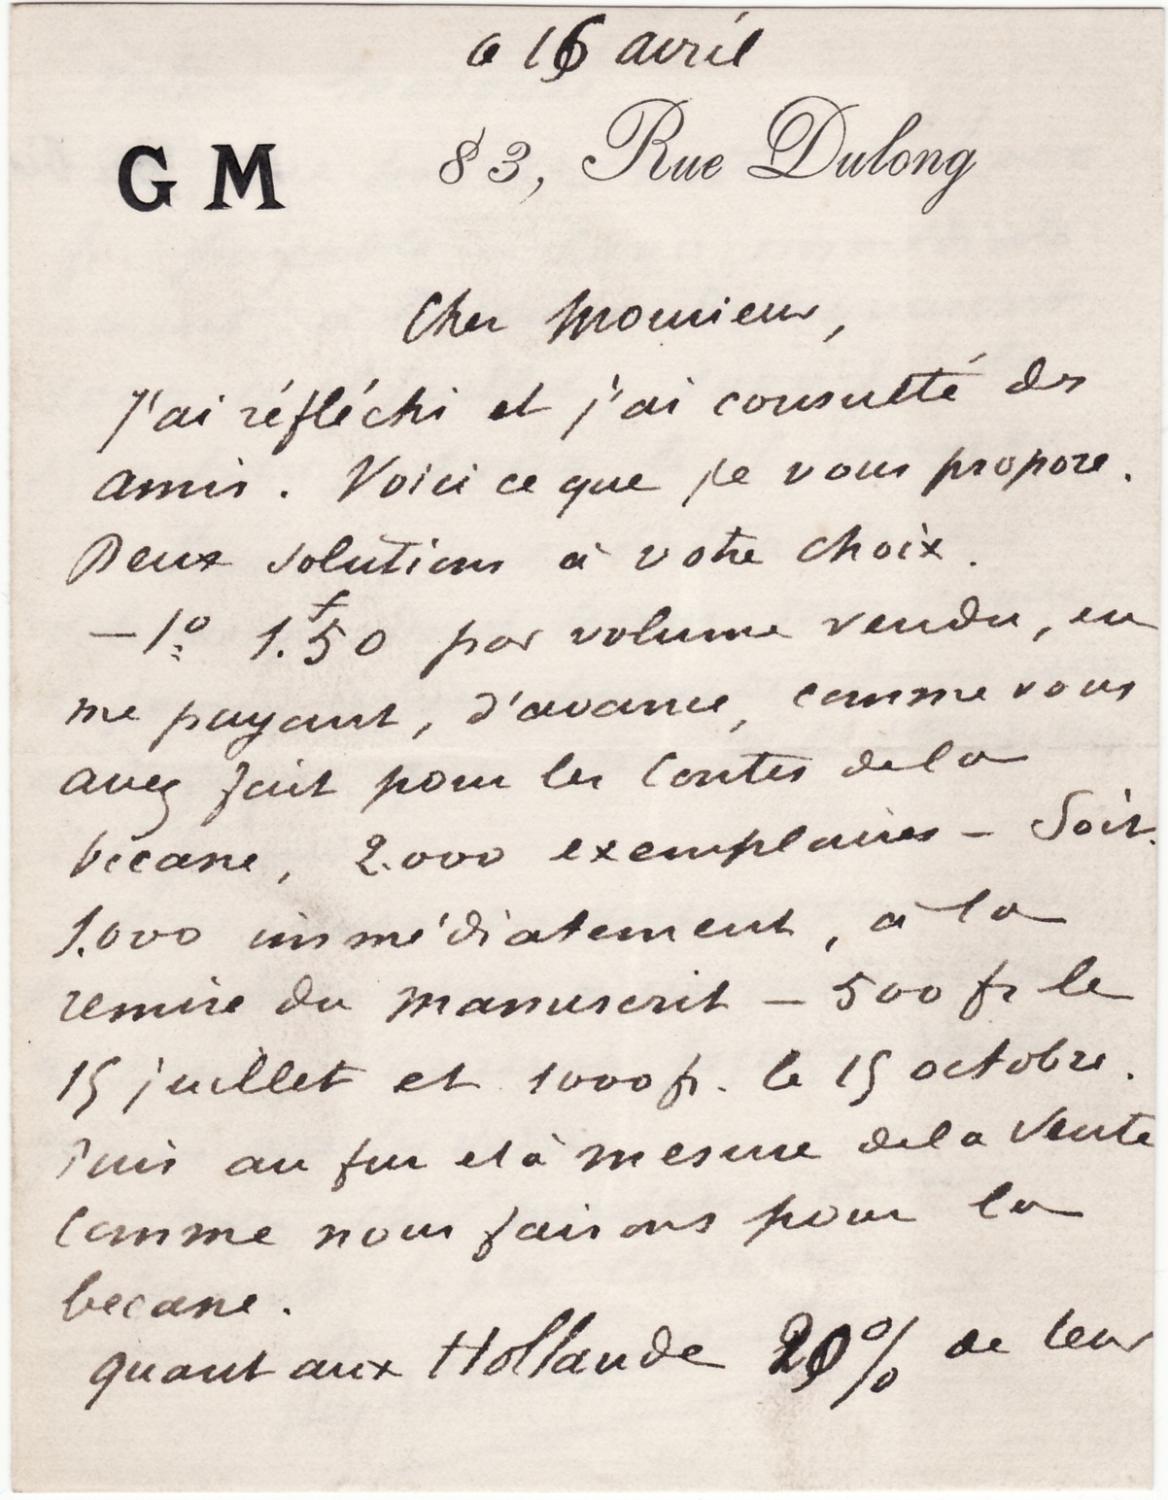 le 16 avril
G M
83, Rue Dulong
Cher Monsieur,
J'ai réfléchi et j'ai consulté des
amis. Voici ce que je vous propose.
Deux solutions à votre choix.
— 1º 1.f50 par volume vendu, en
me payant, d'avance, comme vous
avez fait pour les Contes de la
bécane, 2.000 exemplaires — Soit.
1.000 immédiatement, à la
remise du manuscrit — 500 fr le
15 juillet et 1000 fr. le 15 octobre.
Puis au fur et à mesure de la vente
comme nous faisons pour la
becane.
quant aux Hollande 20% de leur